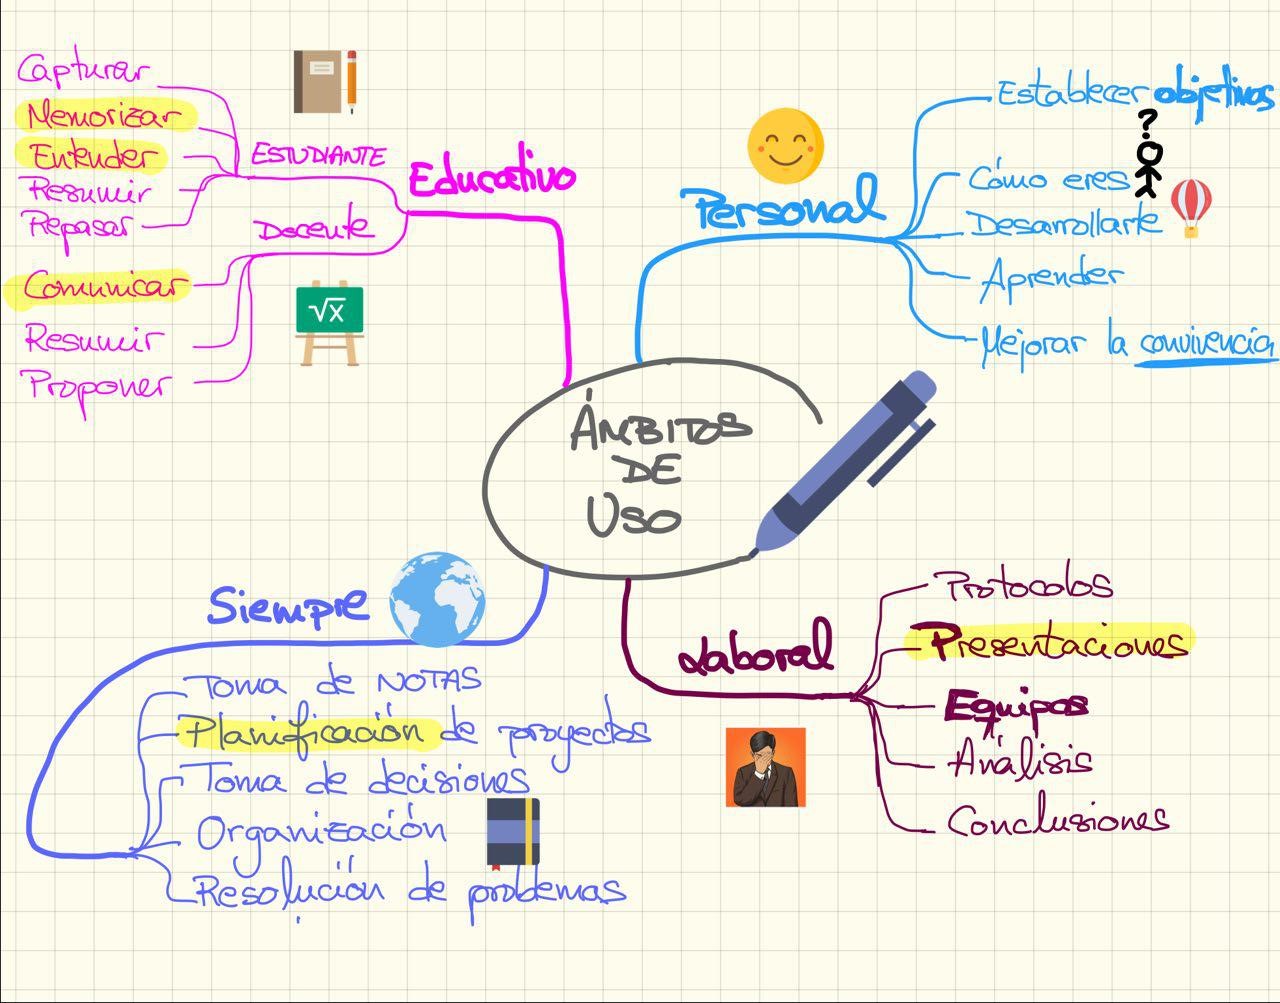 ÁMBITOS
DE
USO
Educativo
ESTUDIANTE
Capturar
Memorizar
Entender
Resumir
Repasar
Docente
Comunicar
Resumir
Proponer
Personal
Establecer objetivos
?
Cómo eres
Desarrollarte
Aprender
Mejorar la convivencia
√x
Siempre
Toma de NOTAS
Planificación de proyectos
Toma de decisiones
Organización
Resolución de problemas
Laboral
Protocolos
Presentaciones
Equipos
Análisis
Conclusiones